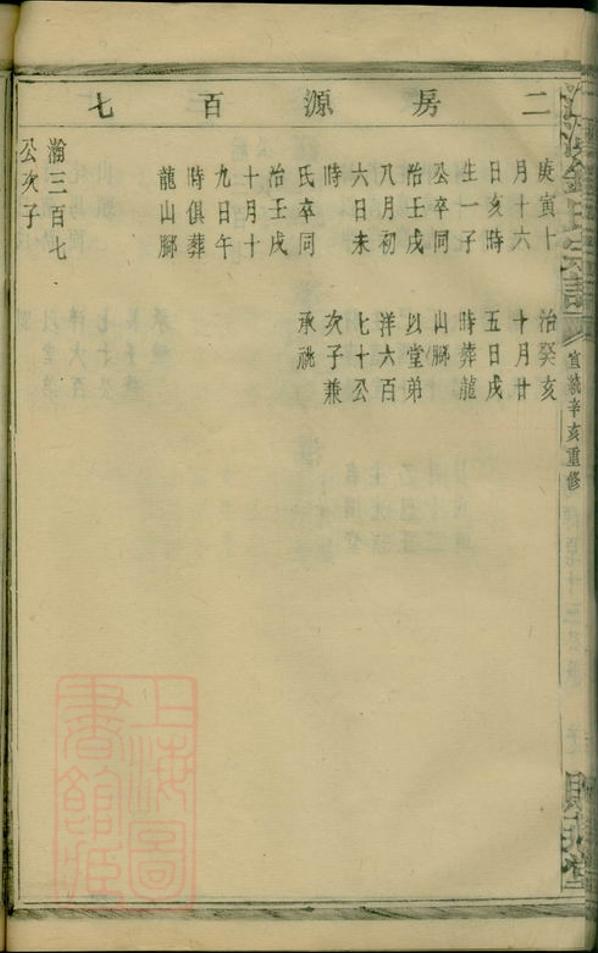 二房源百七
庚寅十
月十六
日亥時
生一子
公卒同
治壬戌
八月初
六日未
時
氏卒同
治壬戌
十月十
九日午
時俱葬
龍山腳
治癸亥
十月廿
五日戌
時葬龍
山腳
以堂弟
洋六百
七十公
次子兼
承祧
瀚三百七
公次子
氏宗譜
宣統辛亥重修
堂
上海圖
書館藏